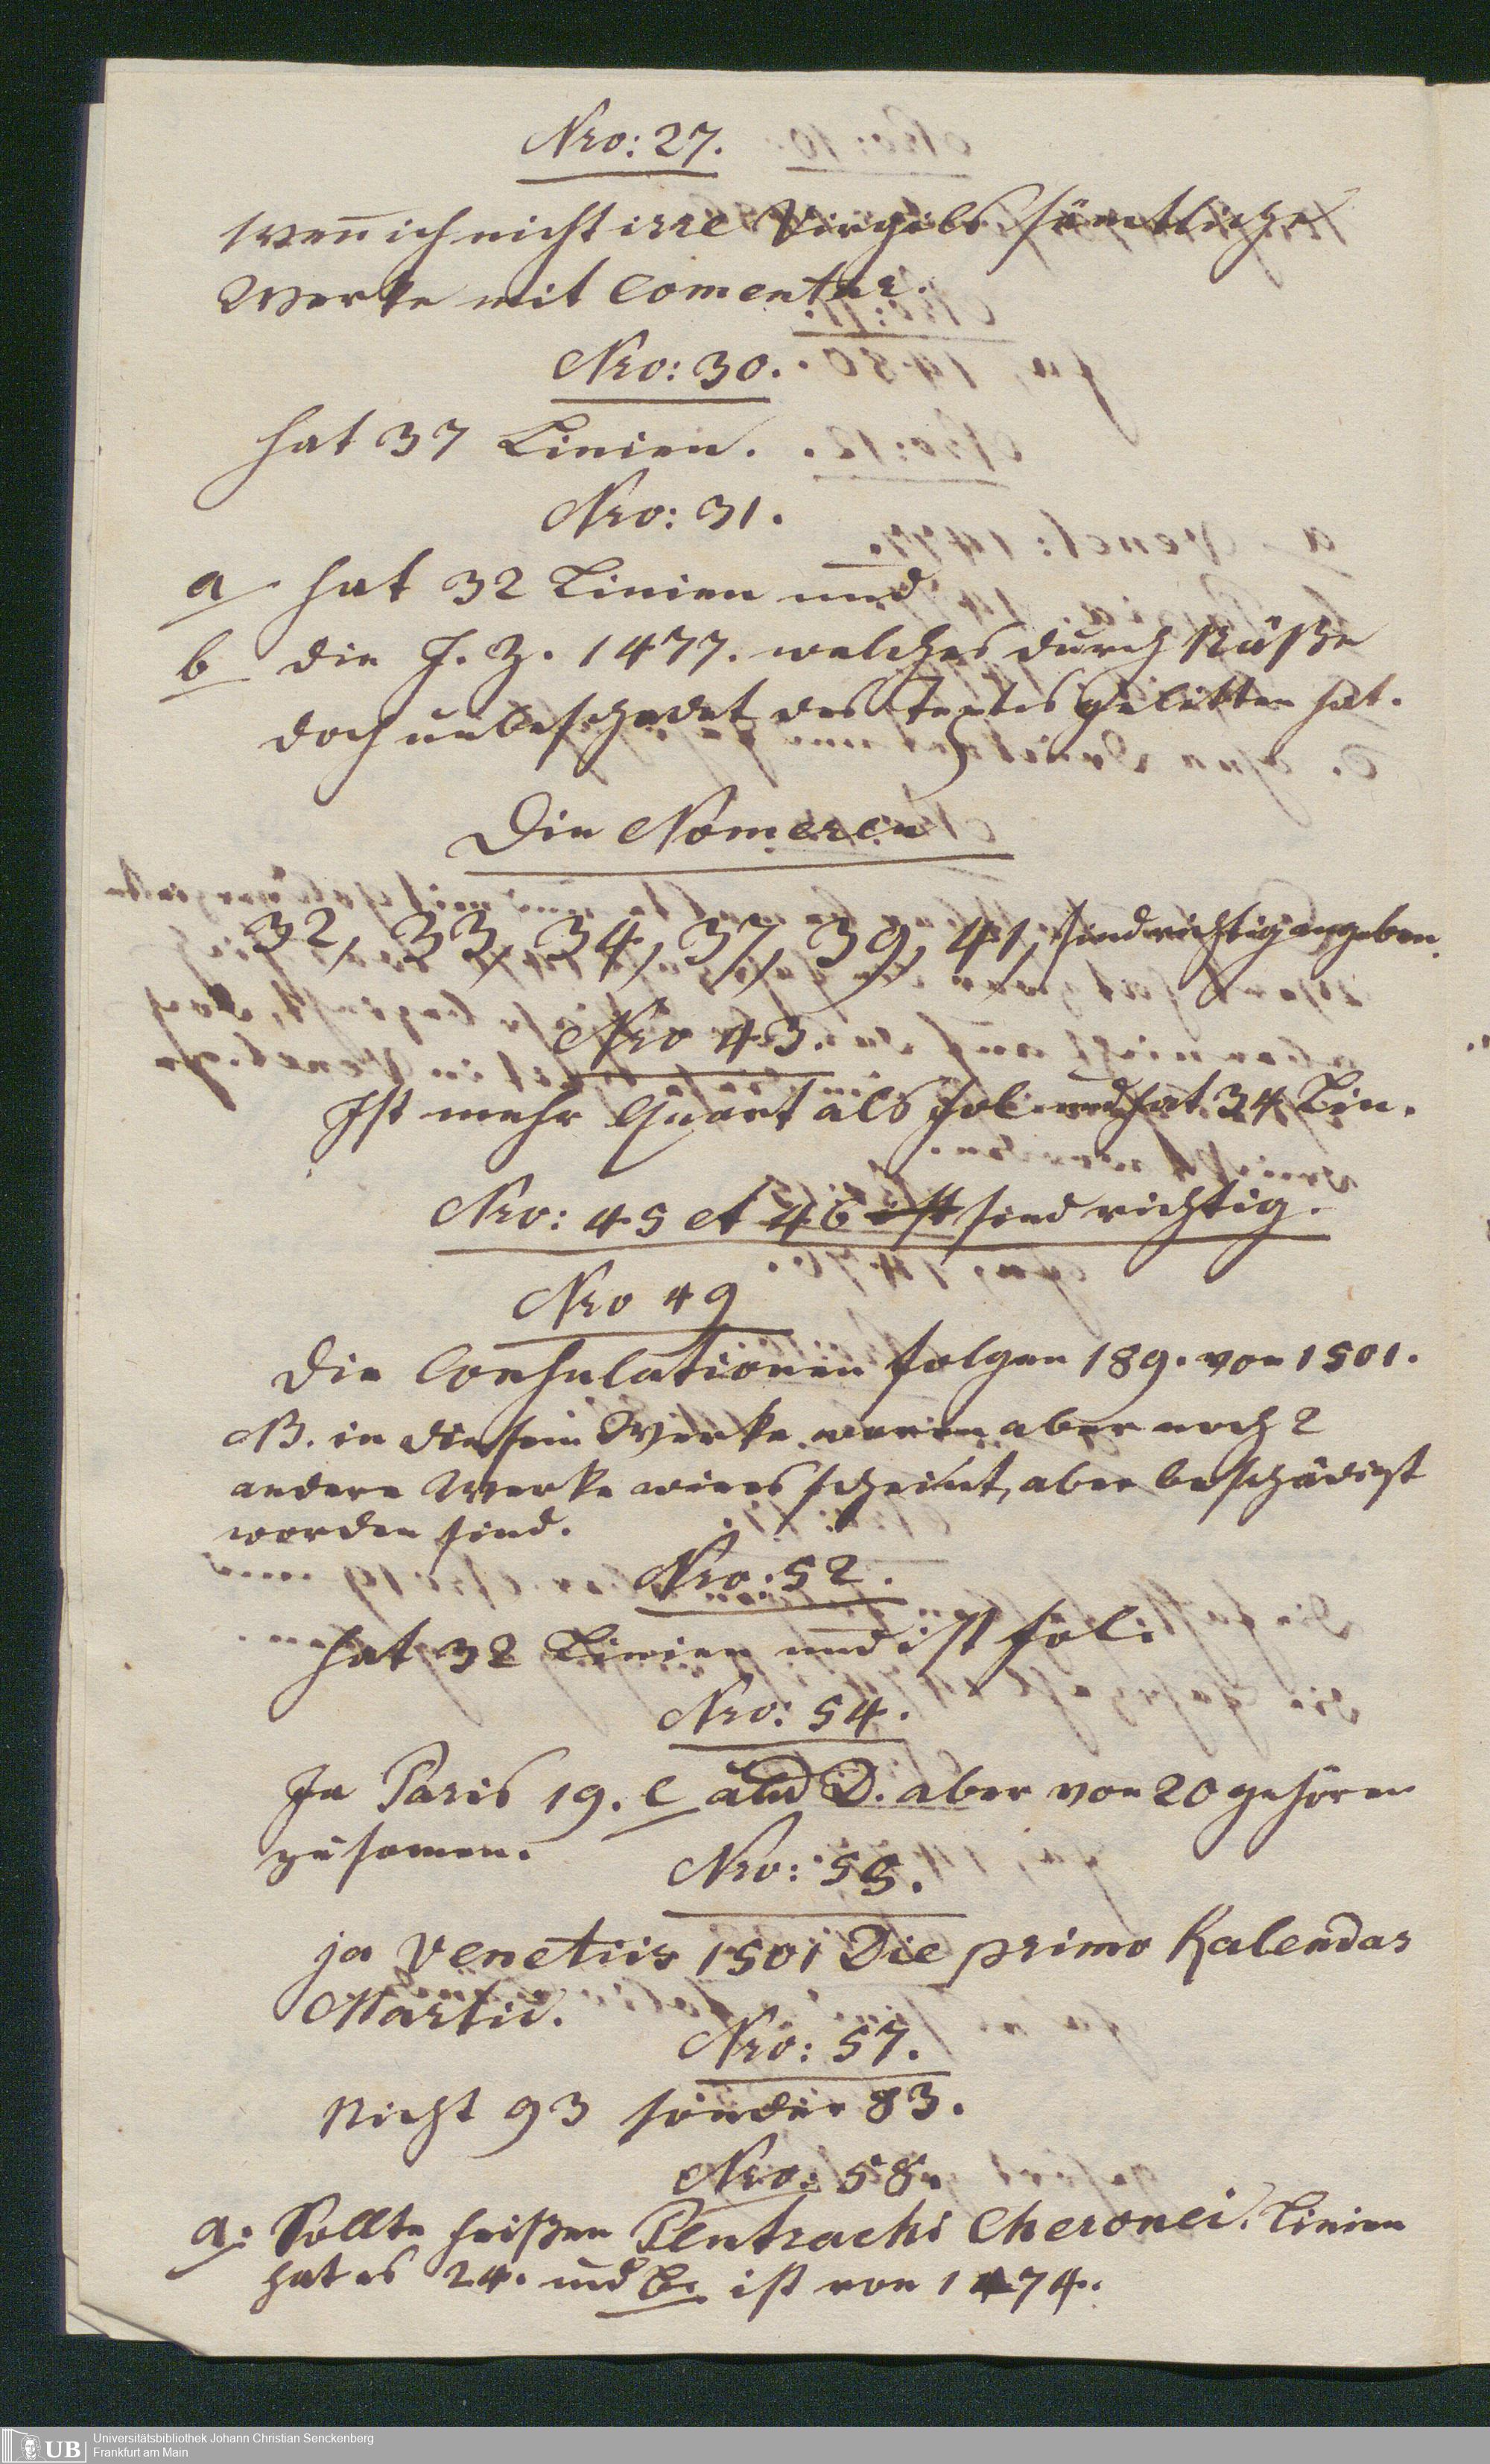 Nro: 27.
Wen̅ ich nicht irre Virgils sämtliche
Werke mit Comentar.
Nro: 30.
hat 37 Linien.
Nro: 31.
a hat 32 Linien und
b die J. Z. 1477. welches durch Näße
doch unbeschadet des Textes gelitten hat.
Die Nomeren
32, 33, 34, 37, 39, 41, sind richtig angeben.
Nro 43.
Ist mehr Quart als fol. und hat 34 Lin.
Nro: 45 et 46 ist sind richtig.
Nro 49
Die Consulationen folgen 189. von 1501.
NB. in diesem Werke waren aber noch 2
andere Werke wie es scheint, aber beschädigt
worden sind.
Nro: 52.
hat 32 Linien und ist foli
Nro: 54.
Ja Paris 19. C und D. aber von 20 gehören
zusamen.
Nro: 55.
ja Venetiis 1501 Die primo Kalendas
Martii.
Nro: 57.
Nicht 93 sonder 83.
Nro: 58.
a: Sollte heißen Plutrachi Cheronei. Linien
hat es 24. und B. ist von 1474.
UB Universitätsbibliothek Johann Christian Senckenberg
Frankfurt am Main